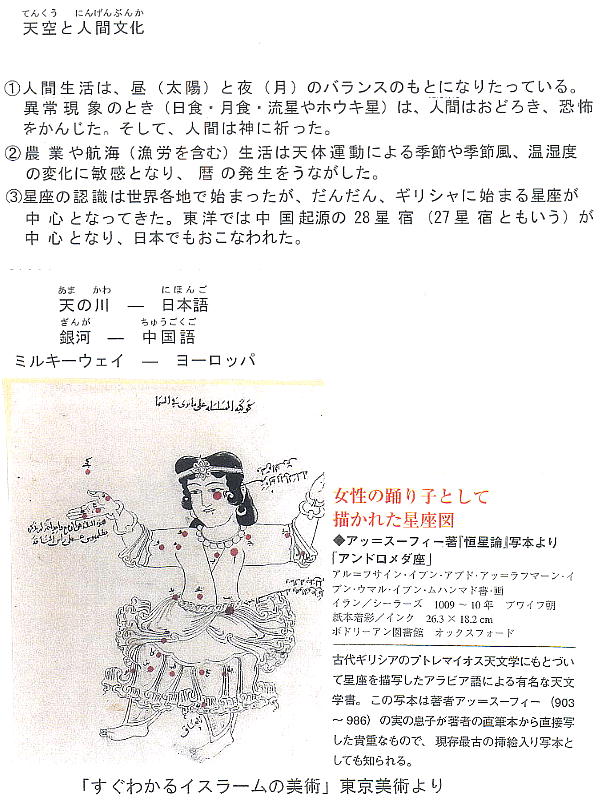 てんくう にんげんぶんか
天空と人間文化
①人間生活は、昼（太陽）と夜（月）のバランスのもとになりたっている。
異常現象のとき（日食・月食・流星やホウキ星）は、人間はおどろき、恐怖
をかんじた。そして、人間は神に祈った。
②農業や航海（漁労を含む）生活は天体運動による季節や季節風、温湿度
の変化に敏感となり、暦の発生をうながした。
③星座の認識は世界各地で始まったが、だんだん、ギリシャに始まる星座が
中心となってきた。東洋では中国起源の28星宿（27星宿ともいう）が
中心となり、日本でもおこなわれた。
あま かわ にほんご
天の川 ― 日本語
ぎんが ちゅうごくご
銀河 ― 中国語
ミルキーウェイ ― ヨーロッパ
女性の踊り子として
描かれた星座図
◆アッ＝スーフィー著『恒星論』写本より
「アンドロメダ座」
アル＝フサイン・イブン・アブド・アッ＝ラフマーン・イ
ブン・ウマル・イブン・ムハンマド書・画
イラン／シーラーズ 1009～10年 ブワイフ朝
紙本着彩／インク 26.3×18.2cm
ボドリーアン図書館 オックスフォード
古代ギリシアのプトレマイオス天文学にもとづい
て星座を描写したアラビア語による有名な天文
学書。この写本は著者アッ＝スーフィー（903
～986）の実の息子が著者の画筆本から直接写
した貴重なもので、現存最古の挿絵入り写本と
しても知られる。
「すぐわかるイスラームの美術」東京美術より